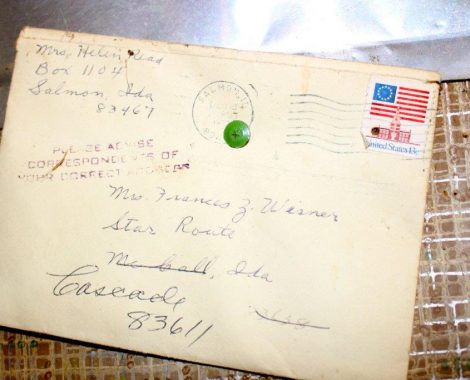 Mrs. Helen Read
Box 1104
Salmon, Ida
83467
SALMON, I
United States 13c
PLEASE ADVISE
CORRESPONDENTS OF
YOUR CORRECT ADDRESS
Mrs. Francis Z. Wisner
Star Route
McCall, Ida
Cascade
83611